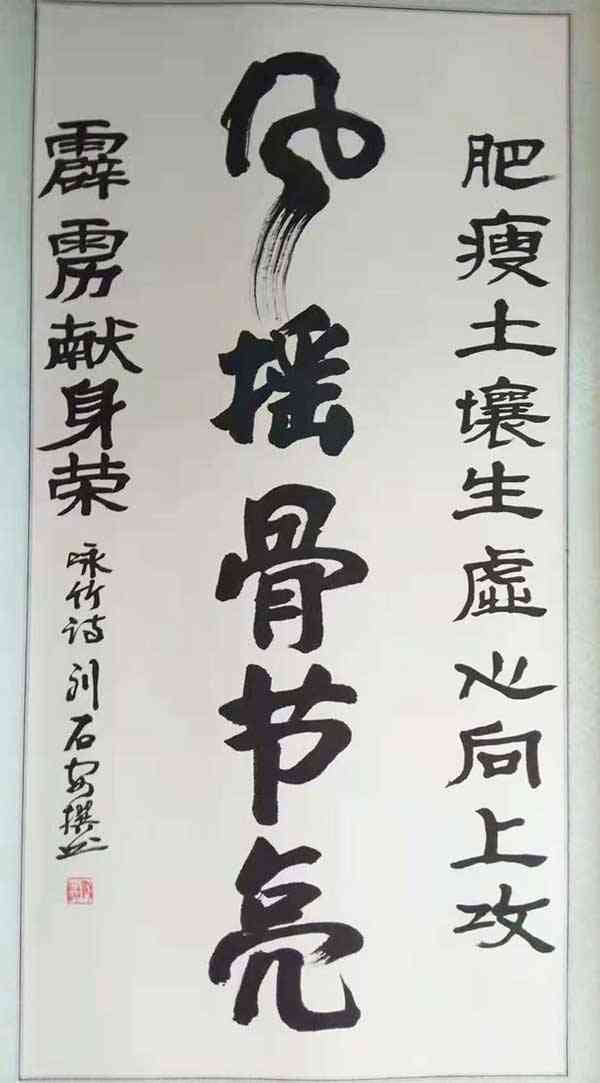 肥瘦土壤生虚心向上攻
风摇骨节亮
霹雳献身荣
咏竹诗 刘石安撰书